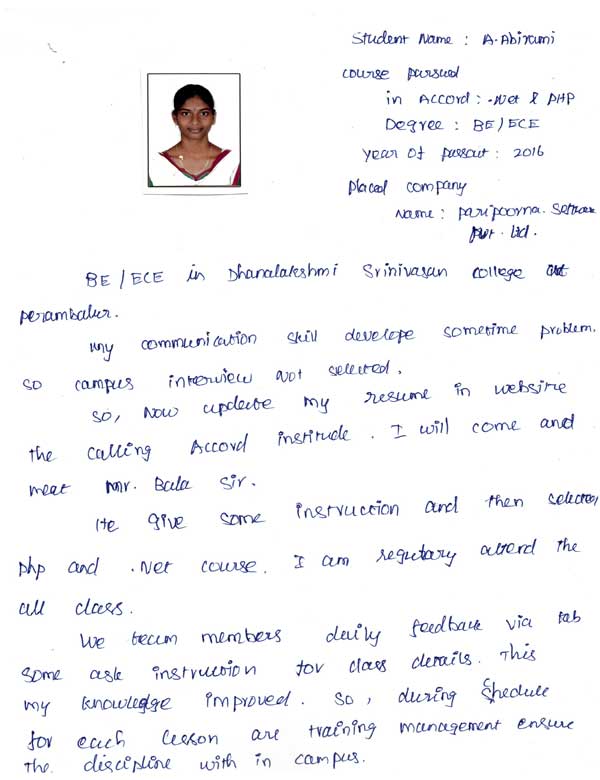 Student Name : A.Abirami
course pursued
in Accord : .Net & PHP
Degree : BE/ECE
year of passout : 2016
placed company
Name : paripoorna. Software
pvt. ltd.
BE/ECE in Dhanalakshmi Srinivasan college at
perambalur.
My communication skill develope sometime problem.
so campus interview not selected.
so, Now update my resume in website
the calling Accord institude. I will come and
meet Mr. Bala Sir.
He give some instruction and then selected
php and .Net course. I am regulary attend the
all class.
We team members daily feedback via tab
some ask instruction for class details. This
my knowledge improved. so, during Shedule
for each lesson are training management ensure
the discipline with in campus.